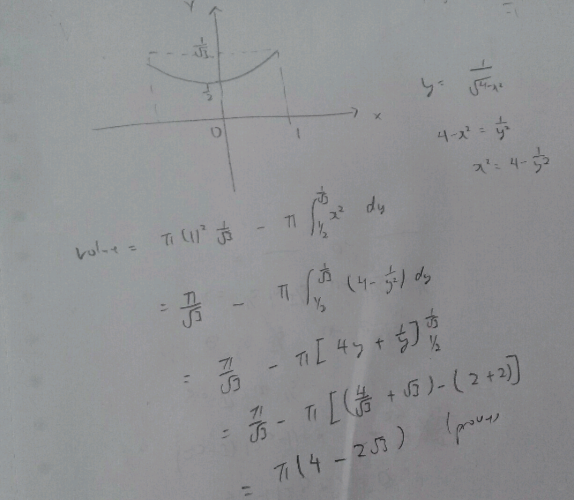 y
1/√3
1/2
0
1
x
y = 1/√(4-x²)
4-x² = 1/y²
x² = 4 - 1/y²
= π(1)² 1/√3 - π ∫_{1/2}^{1/√3} x² dy
= π/√3 - π ∫_{1/2}^{1/√3} (4 - 1/y²) dy
= π/√3 - π [4y + 1/y]_{1/2}^{1/√3}
= π/√3 - π [(4/√3 + √3) - (2+2)]
= π(4 - 2√3)